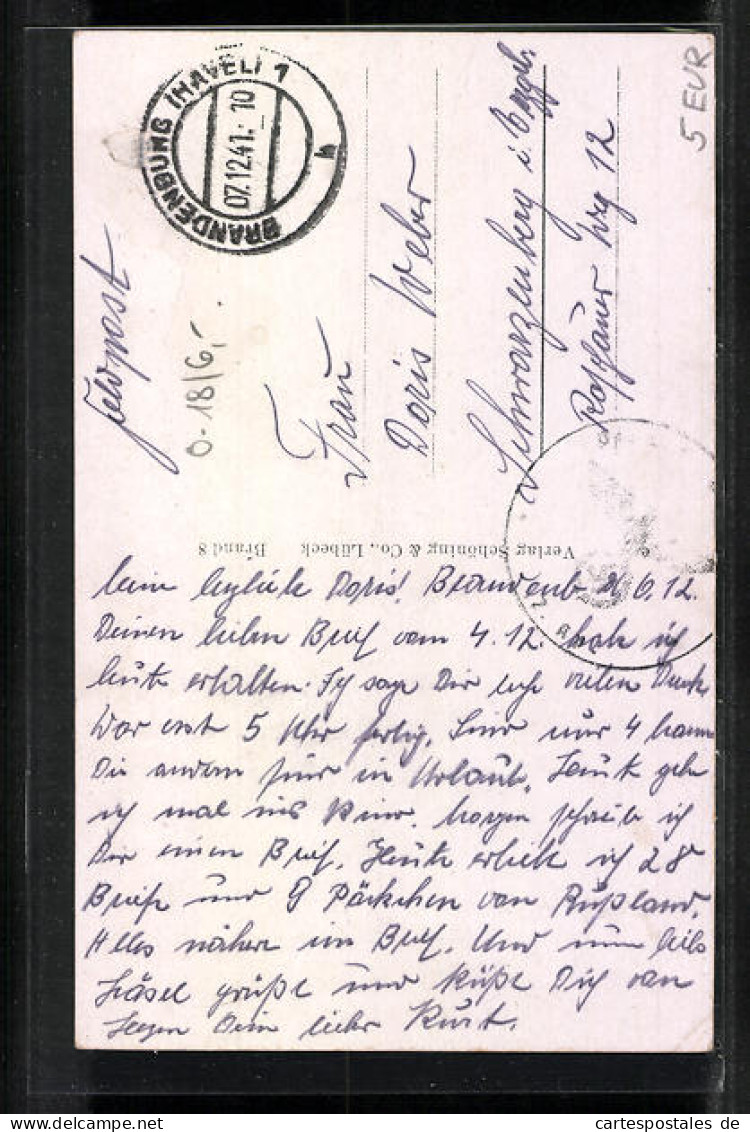 BRANDENBURG (HAVEL) 1
h
07.12.41.-10
5 EUR
Feldpost
0-18/6,-.
Frau
Doris Weber
Schwarzenberg i. Erzgeb.
Weg 12
Verlag Schöning & Co., Lübeck Brand 8
Doris! Brandenb. 6.12.
Deinen lieben Brief vom 4.12. hab ich
heute erhalten. Ich sage Dir vielen Dank
War erst 5 Uhr fertig. Sind nur 4 Mann
Die andern sind in Urlaub. Heute gehe
ich mal ins Kino. Morgen schreibe ich
Dir einen Brief. Heute erhielt ich 28
Briefe und 8 Päckchen von Rußland.
Alles nähere im Brief. Und nun liebs
Häsel grüßt und küßt Dich von
Herzen Dein lieber Kurt.
cartespostales de